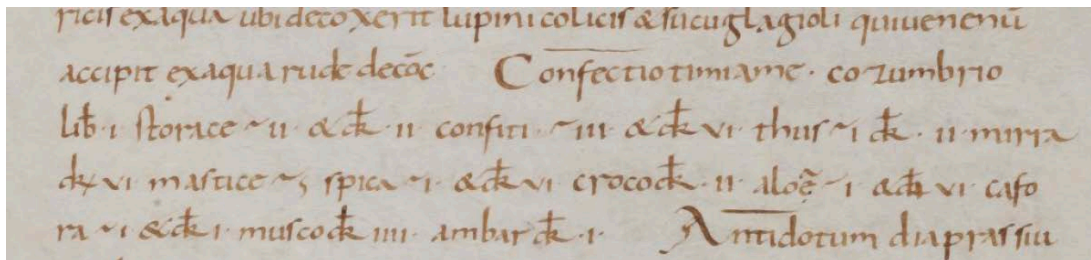 ricis ex aqua ubi decoxerit lupini colicis & sucu glagioli qui uenenū
accipit ex aqua rude decoc̄ Confectio timiame · cozumbrio
lib̄ · i · storace ~ ii · & dк̄ · ii · confiti · ~ iii · & dк̄ vi · thus ~ i dк̄ · ii · mirra
dк̄ vi · mastice ~ ʒ spica ~ i · & dк̄ vi croco dк̄ · ii · aloę̄ ~ i · & dк̄ vi cafo
ra ~ i & dк̄ i · musco dк̄ iiii · ambar dк̄ · i · Antidotum diaprassiu